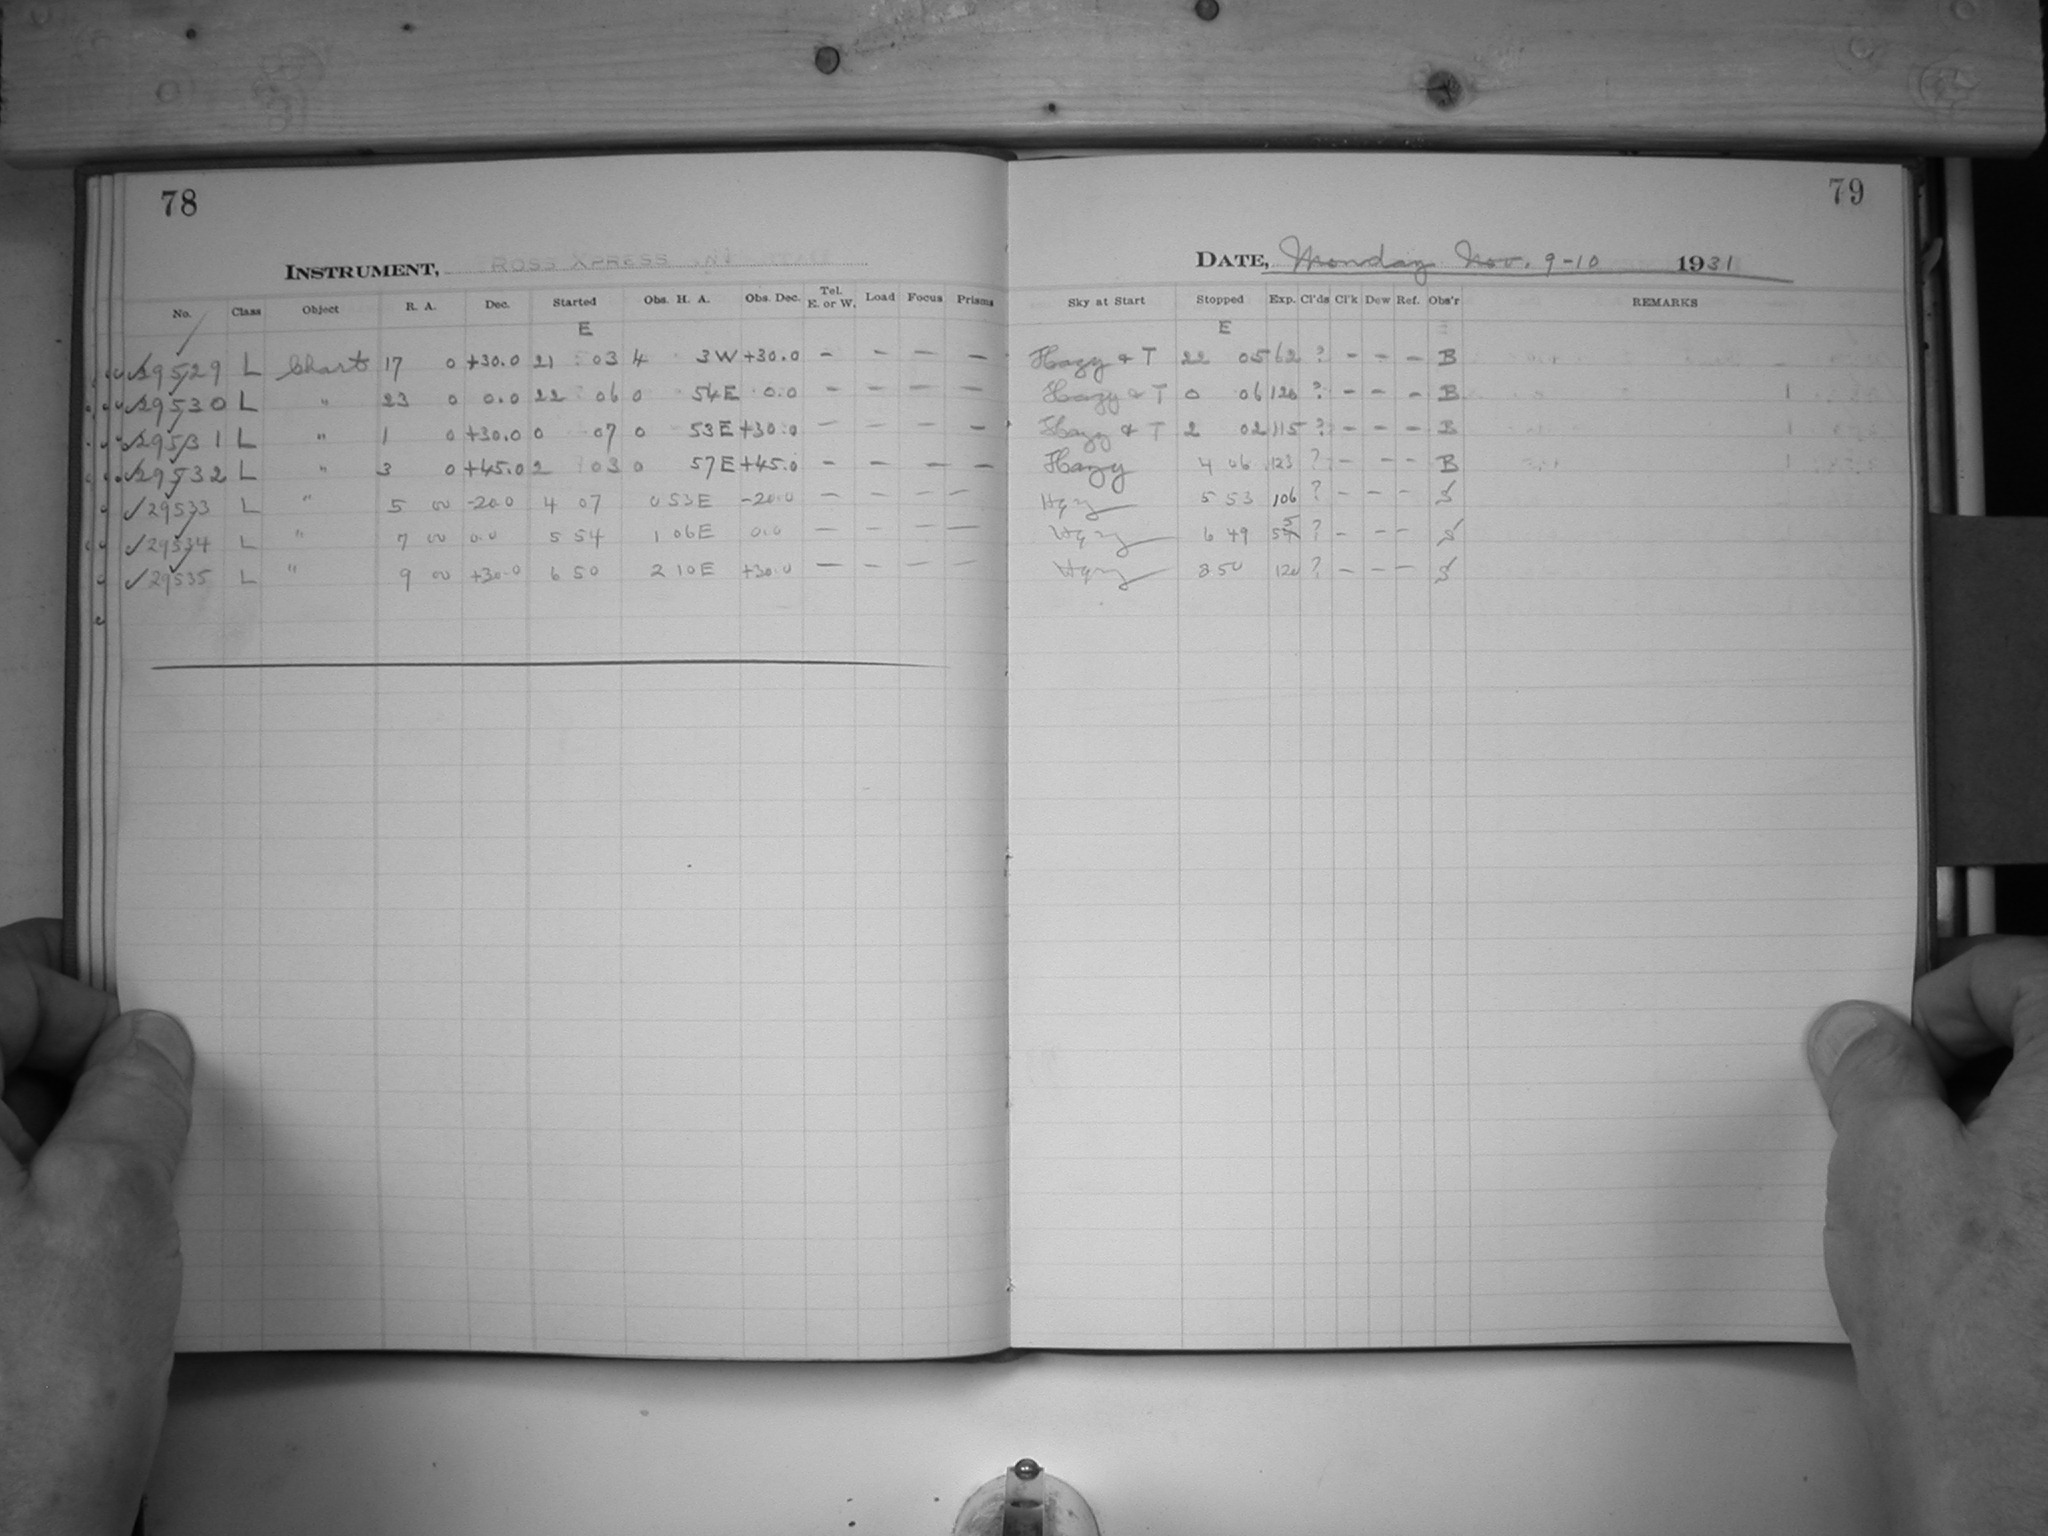 78
INSTRUMENT, ROSS XPRESS
No. Class Object R. A. Dec. Started Obs. H. A. Obs. Dec. Tel. E. or W. Load Focus Prisms
E
29529 L Chart 17 0 +30.0 21 03 4 3W +30.0 - - - -
29530 L " 23 0 0.0 22 06 0 54E 0.0 - - - -
29531 L " 1 0 +30.0 0 07 0 53E +30.0 - - - -
29532 L " 3 0 +45.0 2 03 0 57E +45.0 - - - -
29533 L " 5 00 -20.0 4 07 0 53E -20.0 - - - -
29534 L " 7 00 0.0 5 54 1 06E 0.0 - - - -
29535 L " 9 00 +30.0 6 50 2 10E +30.0 - - - -
79
DATE, Monday Nov. 9-10 1931
Sky at Start Stopped Exp. Cl'ds Cl'k Dew Ref. Obs'r REMARKS
E
Hazy & T 22 05 62 ? - - - B
Hazy & T 0 06 120 ? - - - B
Hazy & T 2 02 115 ? - - - B
Hazy 4 06 123 ? - - - B
Hazy 5 53 106 ? - - - S
Hazy 6 49 55 ? - - - S
Hazy 8 50 120 ? - - - S